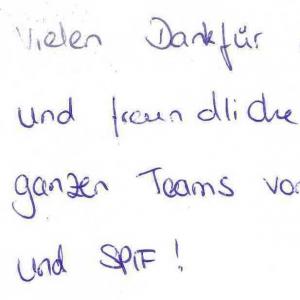 Vielen Dank für
und freundliche
ganzen Teams vo
und SPIF!